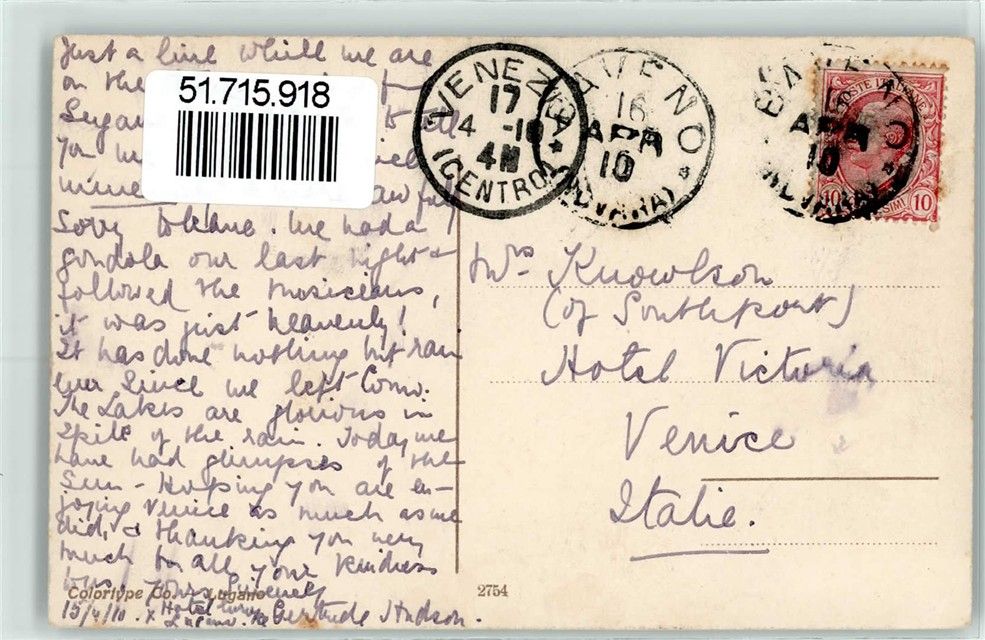 Just a line while we are
on the
51.715.918
Lugano to tell
you
mine awful
Sorry to leave. We had a
gondola our last night &
followed the musicians,
it was just heavenly!
It has done nothing but rain
ever since we left Como.
The Lakes are glorious in
spite of the rain. Today we
have had glimpses of the
Sun - Hoping you are en-
joying Venice as much as we
did, & thanking you very
much for all your kindness
Yours sincerely
Colortype Co. Lugano
15/4/10. x Hotel Gertrude Hudson.
Lugano.
VENEZIA
17
4 -10
4M
(CENTRO)
BAVENO
16
APR
10
(NOVARA)
BAVENO
APR
10
(NOVARA)
POSTE ITALIANE
10 CENTESIMI 10
Mrs Knowlson
(of Southport)
Hotel Victoria
Venice
Italie.
2754